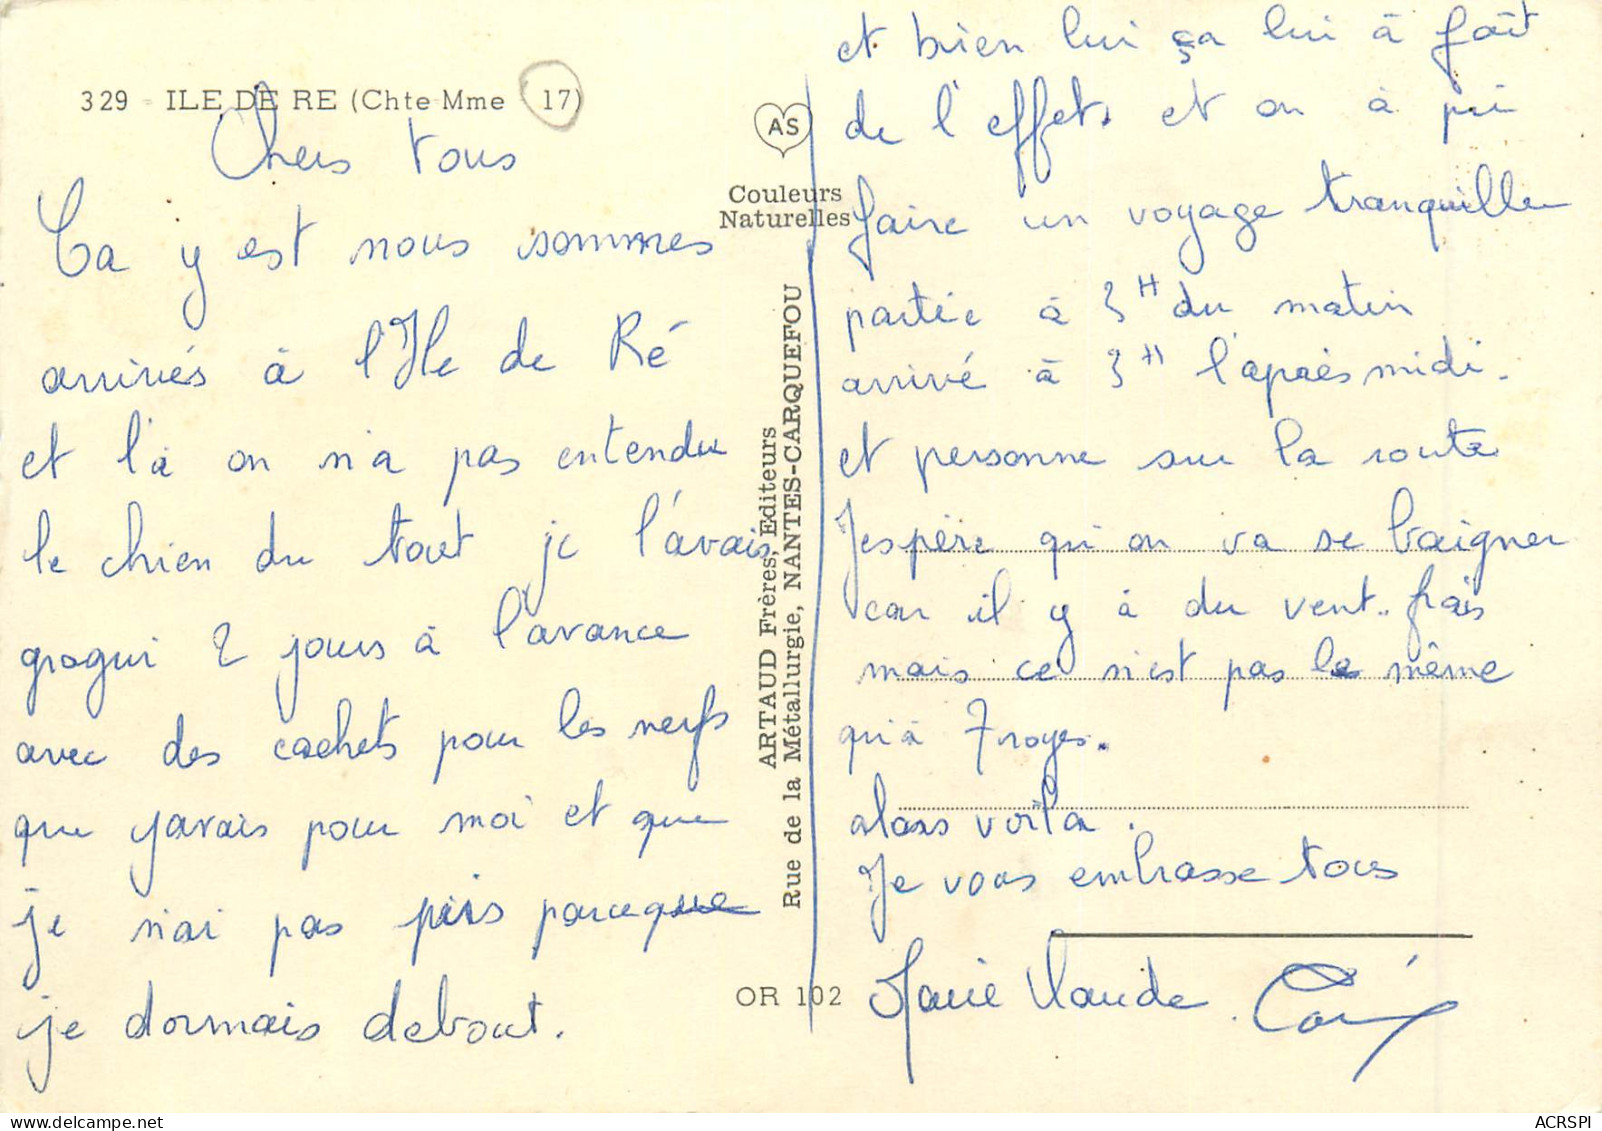 329 - ILE DE RE (Chte-Mme 17)
Chers tous
Ca y est nous sommes
arrivés à l'Ile de Ré
et l'à on n'a pas entendu
le chien du tout je l'avais
grogui 2 jours à l'avance
avec des cachets pour les nerfs
que j'avais pour moi et que
je n'ai pas pris parceque
je dormais debout.
AS
Couleurs
Naturelles
ARTAUD Frères, Editeurs
Rue de la Métallurgie, NANTES-CARQUEFOU
OR 102
et bien lui ça lui à fait
de l'effet. et on à pu
faire un voyage tranquille
partie à 3H du matin
arrivé à 3H l'après midi.
et personne sur la route
J'espère qu'on va se baigner
car il y à du vent.. frais
mais ce n'est pas le même
qu'à Troyes.
alors voila.
Je vous embrasse tous
Marie Claude
ACRSPI